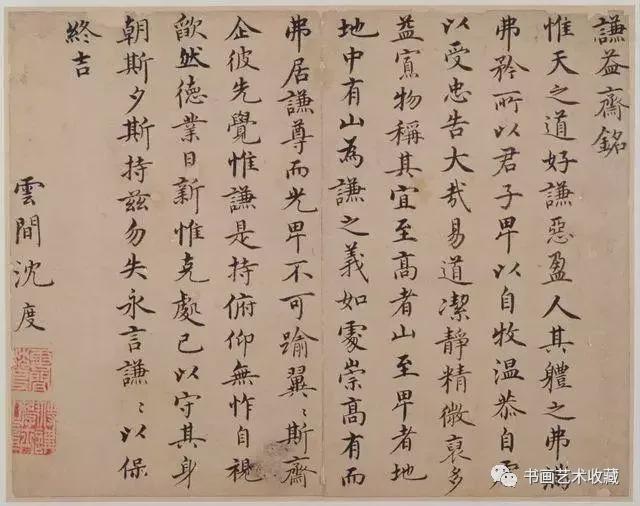 謙益齋銘
惟天之道好謙惡盈人其體之弗滿
弗矜所以君子卑以自牧温恭自虚
以受忠告大哉易道潔靜精微裒多
益寡物稱其宜至高者山至卑者地
地中有山為謙之義如處崇高有而
弗居謙尊而光卑不可踰翼〻斯齋
企彼先覺惟謙是持俯仰無怍自視
歉然德業日新惟克處已以守其身
朝斯夕斯持兹勿失永言謙〻以保
終吉
雲間沈度
书画艺术收藏